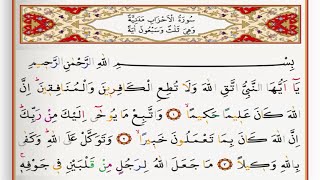 سُورَةُ الْاَحْزَابِ مَدَنِيَّةٌ
وَهِيَ ثَلٰثٌ وَسَبْعُونَ اٰيَةً
بِسْمِ اللّٰهِ الرَّحْمٰنِ الرَّحِيمِ
يَٓا اَيُّهَا النَّبِيُّ اتَّقِ اللّٰهَ وَلَا تُطِعِ الْكَافِرِينَ وَالْمُنَافِقِينَۜ اِنَّ
اللّٰهَ كَانَ عَلِيمًا حَكِيمًاۙ ﴿١﴾ وَاتَّبِعْ مَا يُوحٰٓى اِلَيْكَ مِنْ رَبِّكَۜ اِنَّ
اللّٰهَ كَانَ بِمَا تَعْمَلُونَ خَبِيرًاۙ ﴿٢﴾ وَتَوَكَّلْ عَلَى اللّٰهِۜ وَكَفٰى
بِاللّٰهِ وَكِيلًا ﴿٣﴾ مَا جَعَلَ اللّٰهُ لِرَجُلٍ مِنْ قَلْبَيْنِ فِي جَوْفِهِۚ